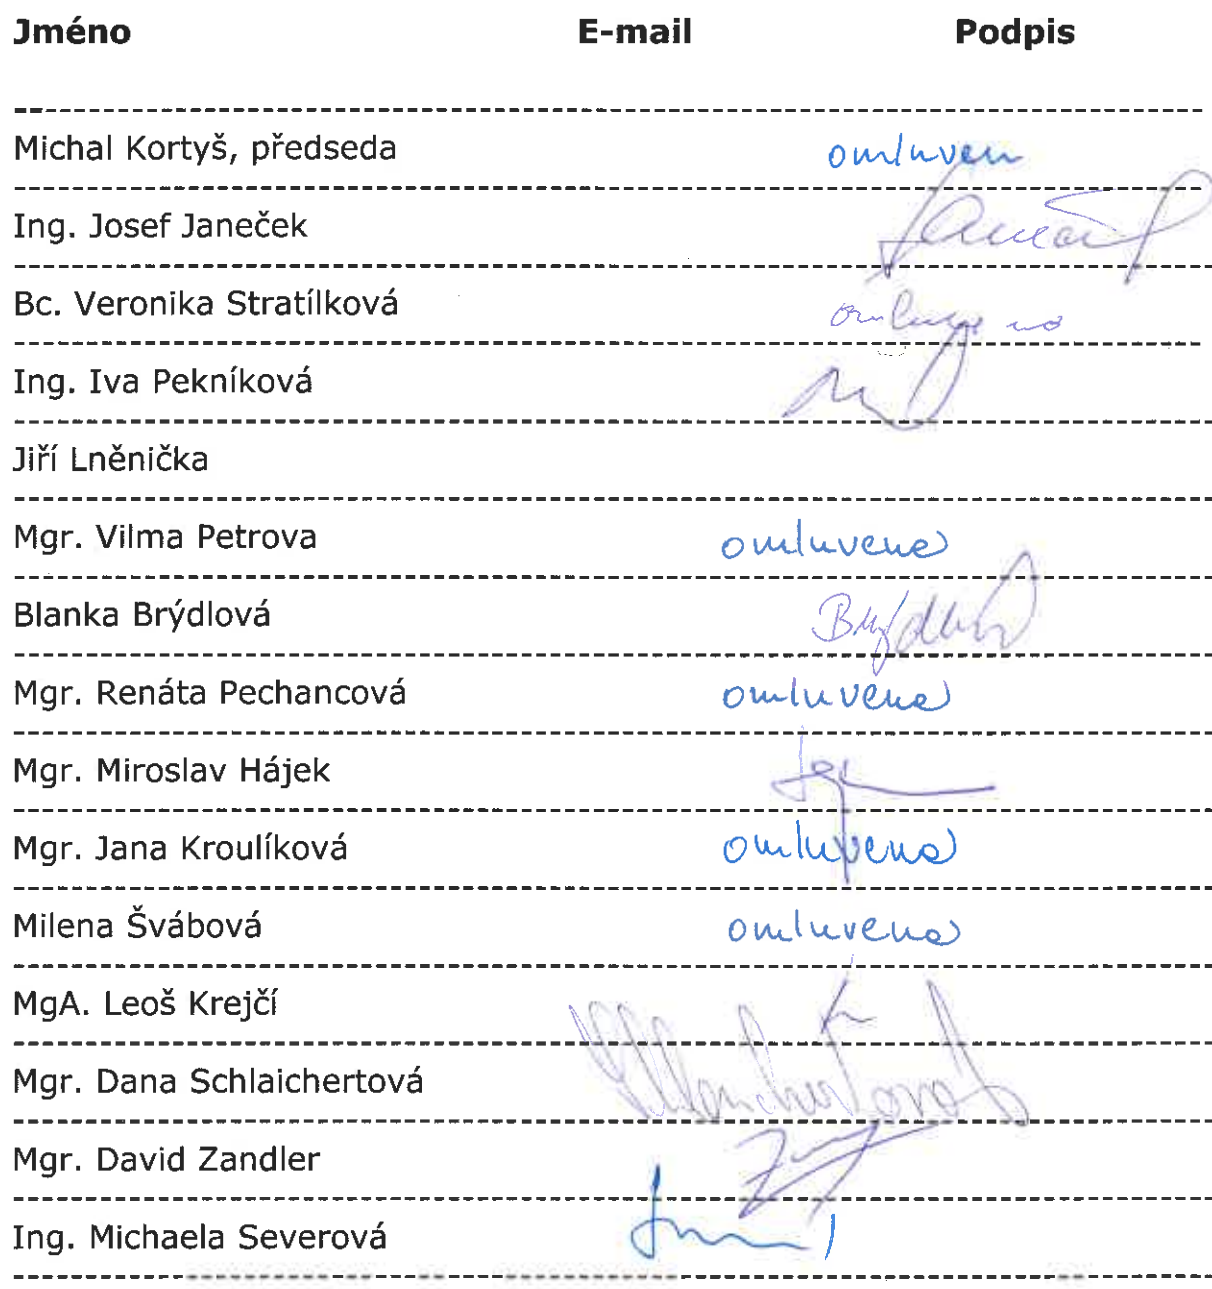 Jméno E-mail Podpis
Michal Kortyš, předseda omluven
Ing. Josef Janeček
Bc. Veronika Stratílková omluvena
Ing. Iva Pekníková
Jiří Lněnička
Mgr. Vilma Petrova omluvena
Blanka Brýdlová Brýdlová
Mgr. Renáta Pechancová omluvena
Mgr. Miroslav Hájek
Mgr. Jana Kroulíková omluvena
Milena Švábová omluvena
MgA. Leoš Krejčí
Mgr. Dana Schlaichertová
Mgr. David Zandler
Ing. Michaela Severová